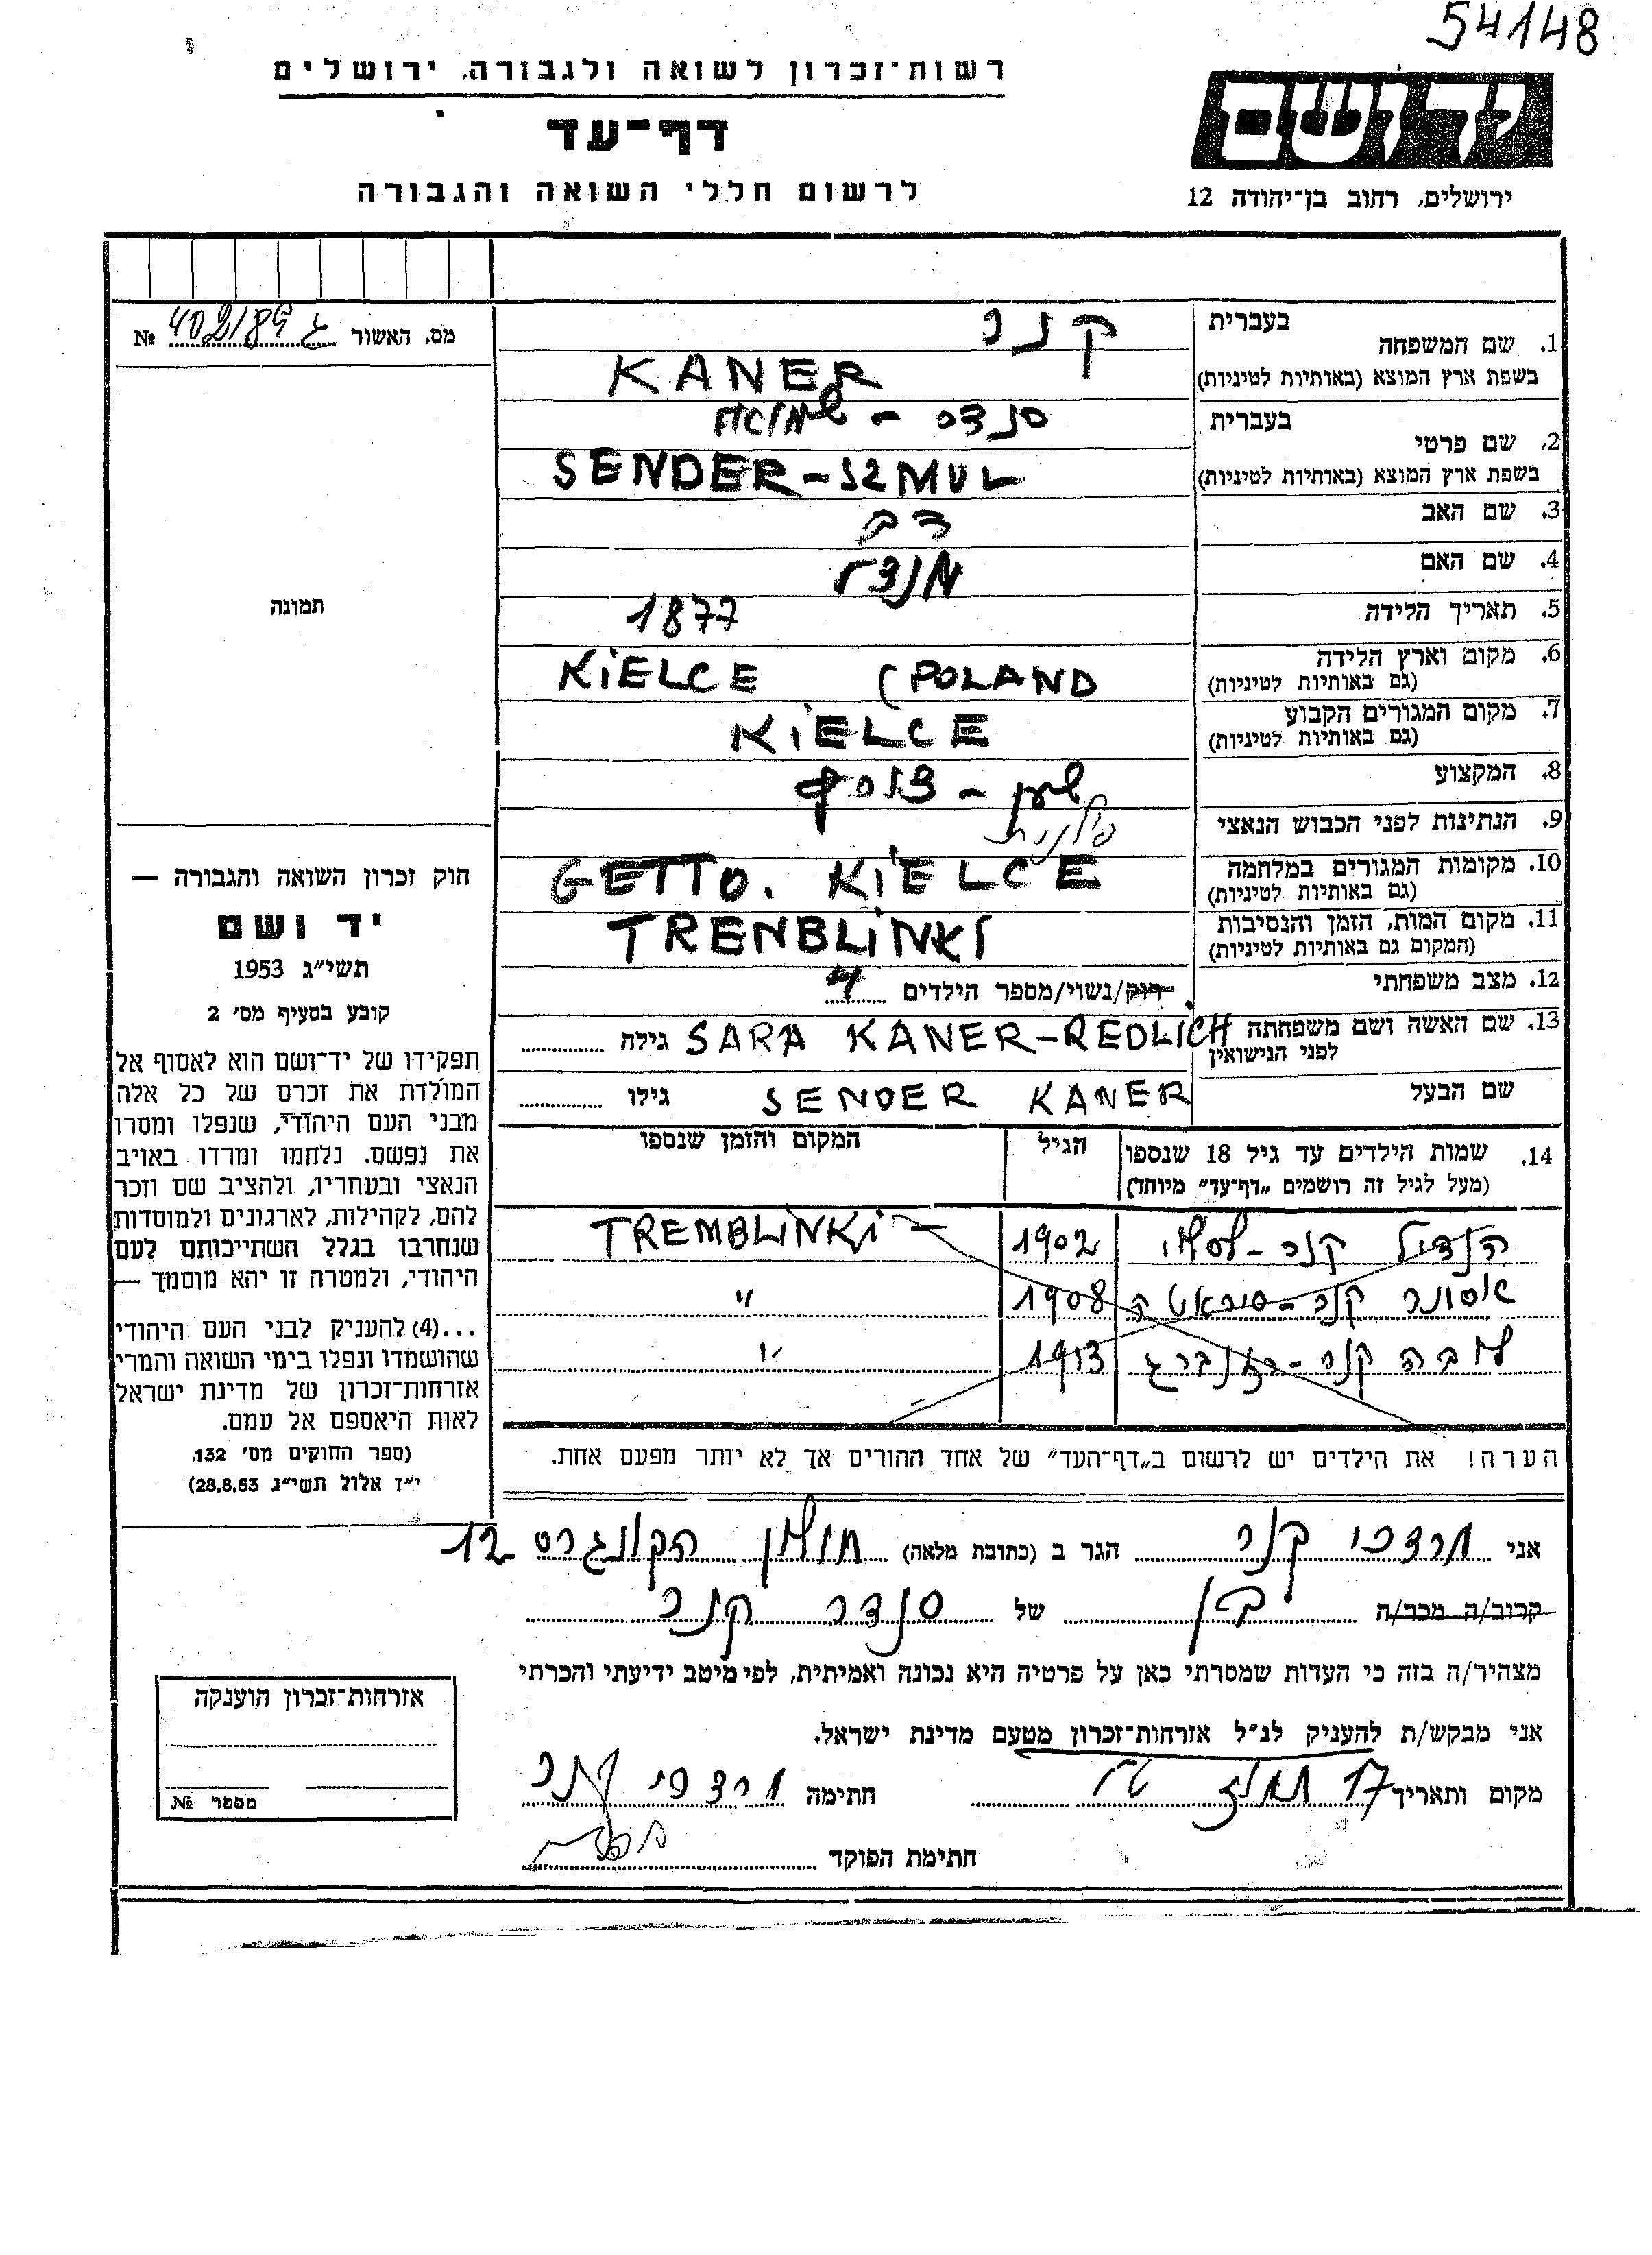 54148
יד ושם
ירושלים, רחוב בן־יהודה 12
רשות־זכרון לשואה ולגבורה, ירושלים
דף־עד
לרשום חללי השואה והגבורה
מס. האשור ג 402/89 №
תמונה
1. שם המשפחה
בעברית קנר
בשפת ארץ המוצא (באותיות לטיניות) KANER
2. שם פרטי
בעברית סנדר - שמואל
בשפת ארץ המוצא (באותיות לטיניות) SENDER-SZMUL
3. שם האב דב
4. שם האם
5. תאריך הלידה 1877
6. מקום וארץ הלידה KIELCE (POLAND
(גם באותיות לטיניות)
7. מקום המגורים הקבוע KIELCE
(גם באותיות לטיניות)
8. המקצוע שען - צורף
9. הנתינות לפני הכבוש הנאצי פולנית
10. מקומות המגורים במלחמה GETTO. KIELCE
(גם באותיות לטיניות)
11. מקום המות, הזמן והנסיבות TRENBLINKI
(המקום גם באותיות לטיניות)
12. מצב משפחתי רוק/נשוי/מספר הילדים 4
13. שם האשה ושם משפחתה SARA KANER-REDLICH גילה
לפני הנישואין
שם הבעל SENDER KANER גילו
14. שמות הילדים עד גיל 18 שנספו הגיל המקום והזמן שנספו
(מעל לגיל זה רושמים „דף־עד” מיוחד)
קנר 1902 TREMBLINKI
קנר 1908 "
קנר 1913 "
הערה! את הילדים יש לרשום ב„דף־העד” של אחד ההורים אך לא יותר מפעם אחת.
חוק זכרון השואה והגבורה —
יד ושם
תשי״ג 1953
קובע בסעיף מס׳ 2
תפקידו של יד־ושם הוא לאסוף אל
המולדת את זכרם של כל אלה
מבני העם היהודי, שנפלו ומסרו
את נפשם. נלחמו ומרדו באויב
הנאצי ובעוזריו, ולהציב שם וזכר
להם, לקהילות, לארגונים ולמוסדות
שנחרבו בגלל השתייכותם לעם
היהודי, ולמטרה זו יהא מוסמך —
...(4) להעניק לבני העם היהודי
שהושמדו ונפלו בימי השואה והמרי
אזרחות־זכרון של מדינת ישראל
לאות היאספם אל עמם.
(ספר החוקים מס׳ 132,
י״ז אלול תשי״ג 28.8.53)
אני מרדכי קנר הגר ב (כתובת מלאה) חולון הקונגרס 12
קרוב/ה מכר/ה בן של סנדר קנר
מצהיר/ה בזה כי העדות שמסרתי כאן על פרטיה היא נכונה ואמיתית, לפי מיטב ידיעתי והכרתי
אני מבקש/ת להעניק לנ״ל אזרחות־זכרון מטעם מדינת ישראל.
מקום ותאריך חתימה מרדכי קנר
חתימת הפוקד
אזרחות־זכרון הוענקה
מספר №